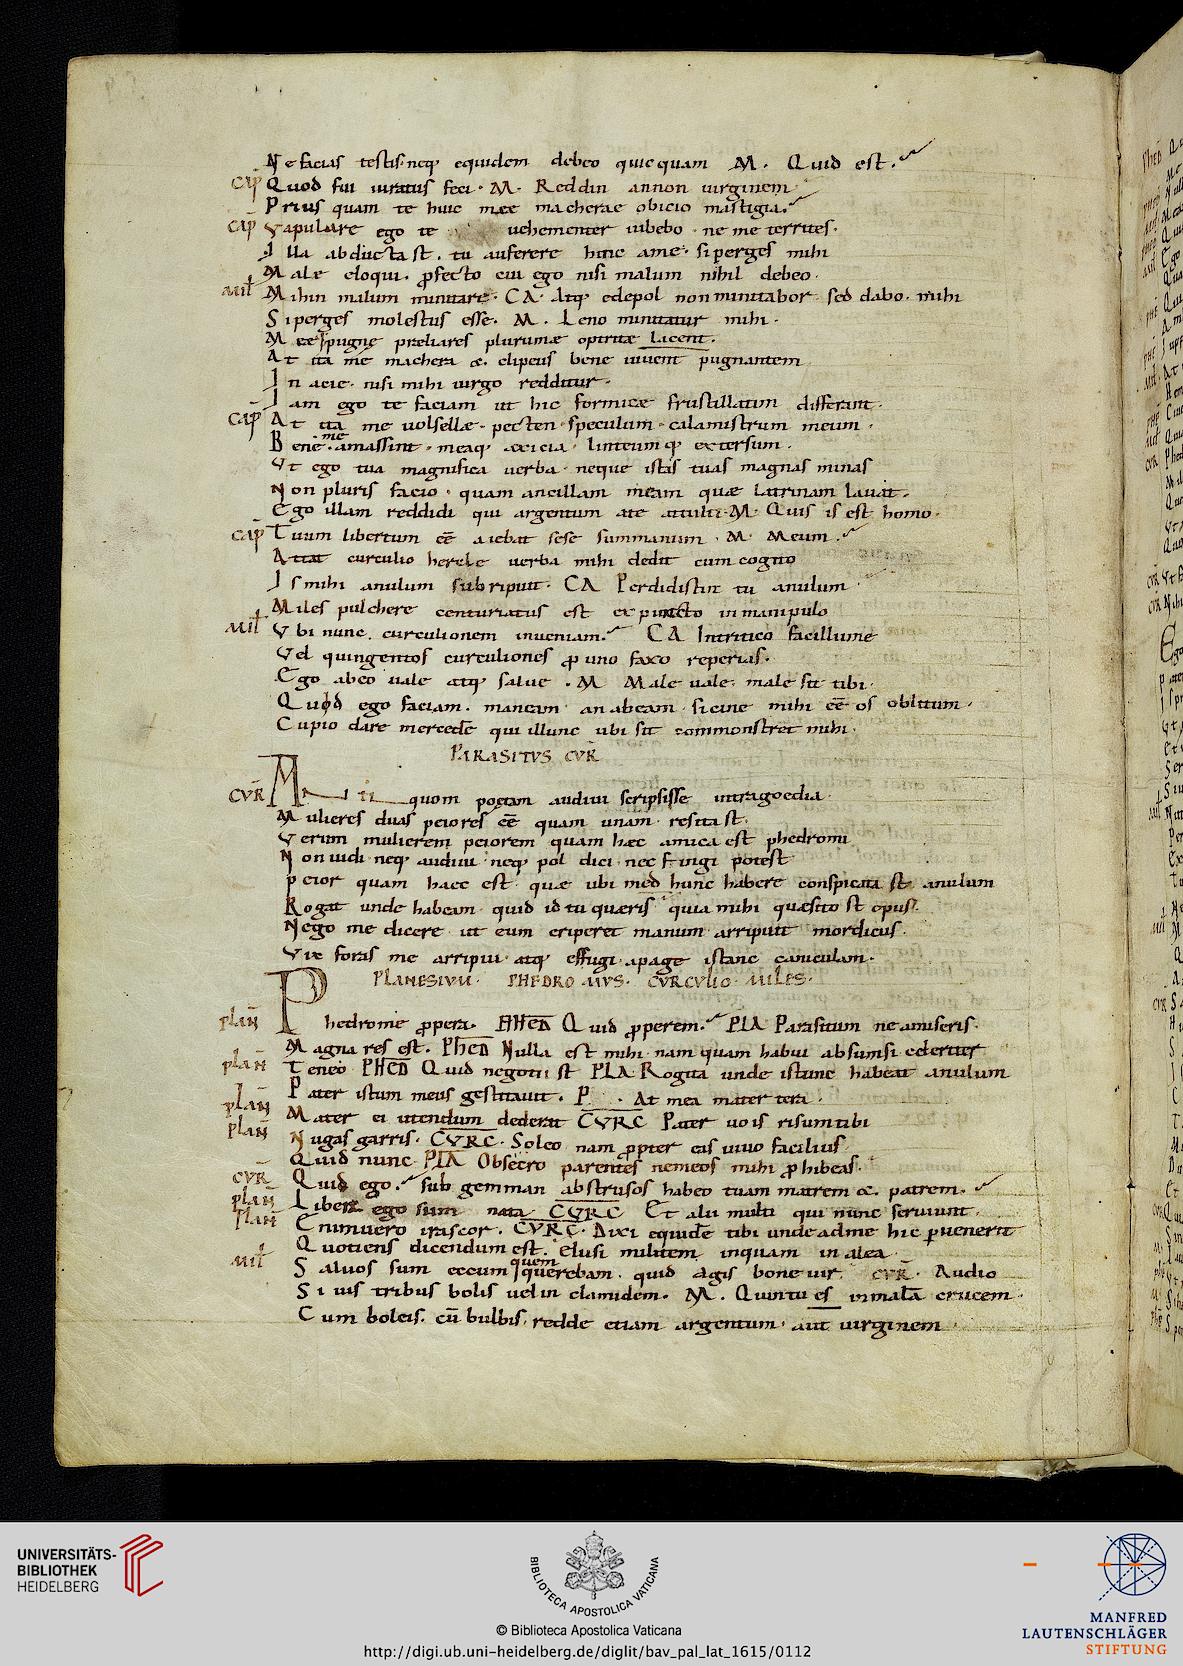 Ne facias testis. neq; equidem debeo quicquam M. Quid est.
cap̄ Quod fui iuratus feci. M. Reddin annon uirginem
Prius quam te huic meę macherae obicio mastigia.
cap̄ Vapulare ego te uehementer iubebo. ne me territes.
Illa abducta st. tu auferere hinc ame. si perges mihi
Male eloqui. ꝓfecto cui ego nisi malum nihil debeo.
Mil̄ Mihin malum minitare. CA. Atq; edepol non minitabor. sed dabo. mihi
Si perges molestus esse. M. Leno minitatur mihi.
pugnę praeliares plurimae optritae licent.
At ita me machera &. clipeus bene iuuent pugnantem
In acie. nisi mihi uirgo redditur.
Iam ego te faciam ut hic formicae frustillatim differant.
cap̄ At ita me uolsellae. pecten. speculum. calamistrum meum.
me
Bene amassint. meaq; linteumq; extersum.
Vt ego tua magnifica uerba. neque istas tuas magnas minas
Non pluris facio. quam ancillam meam quae latrinam lauat.
Ego illam reddidi qui argentum ate attulit. M. Quis is est homo.
cap̄ Tuum libertum eē aiebat sese summanum. M. Meum.
Attat curculio hercle uerba mihi dedit cum cogito
Is mihi anulum subripuit. CA Perdidistin tu anulum
Miles pulchere centuriatus est expuncto in manipulo
Mil̄ Vbi nunc. curculionem inueniam. CA Intritico facillime
Vel quingentos curculiones ꝓ uno faxo reperias.
Ego abeo uale atq; salue. M Male uale. male sit tibi.
Quod ego faciam. maneam. an abeam. sicine mihi eē os oblitum.
Cupio dare mercedē qui illunc ubi sit commonstret mihi.
PARASITVS CVR̄
CVR̄ quom poetam audiui scripsisse intragoedia
Mulieres duas peiores eē quam unam. resita st.
Verum mulierem peiorem quam haec amica est phedromi
Non uidi. neq; audiui. neq; pol dici. nec fingi potest
peior quam haec est. quae ubi med hunc habere conspicata st anulum
Rogat unde habeam. quid id tu quaeris quia mihi quaesito st opus.
Nego me dicere. ut eum eriperet manum arripuit mordicus.
Vix foras me arripui. atq; effugi. apage istanc caniculam.
PLANESIVM. PHEDROMVS. CVRCVLIO. MILES.
plan̄ Phedrome ꝓpera. PHED Quid ꝓperem. PLA Parasitum ne amiseris.
Magna res est. PHED Nulla est mihi. nam quam habui absumsi celeriter
plan̄ Teneo PHED Quid negotii st PLA. Rogita unde istunc habeat anulum
Pater istum meus gestitauit. P . At mea mater tera.
plan̄ Mater ei utendum dederat CVRC Pater uois risum tibi
plan̄ Nugas garris. CVRC. Soleo nam ꝓpter eas uiuo facilius
Quid nunc. PLA Obsecro parentes nemeos mihi ꝓhibeas.
CVR̄ Quid ego. sub gemman abstrusos habeo tuam matrem &. patrem.
plan̄ Libera ego sum nata CVRC Et alii multi qui nunc seruiunt.
plan̄ Enimuero irascor. CVRC. Dixi equidē tibi unde adme hic ꝑuenerit
Quotiens dicendum est. elusi militem inquam in alea
quem
Mil̄ Saluos sum eccum querebam. quid agis bone uir. CVR̄. Audio
Si uis tribus bolis uel in clamidem. M. Quintu es in malā crucem.
Cum boleis. cū bulbis. redde etiam argentum. aut uirginem
UNIVERSITÄTS-
BIBLIOTHEK
HEIDELBERG
BIBLIOTECA APOSTOLICA VATICANA
© Biblioteca Apostolica Vaticana
http://digi.ub.uni-heidelberg.de/diglit/bav_pal_lat_1615/0112
MANFRED
LAUTENSCHLÄGER
STIFTUNG